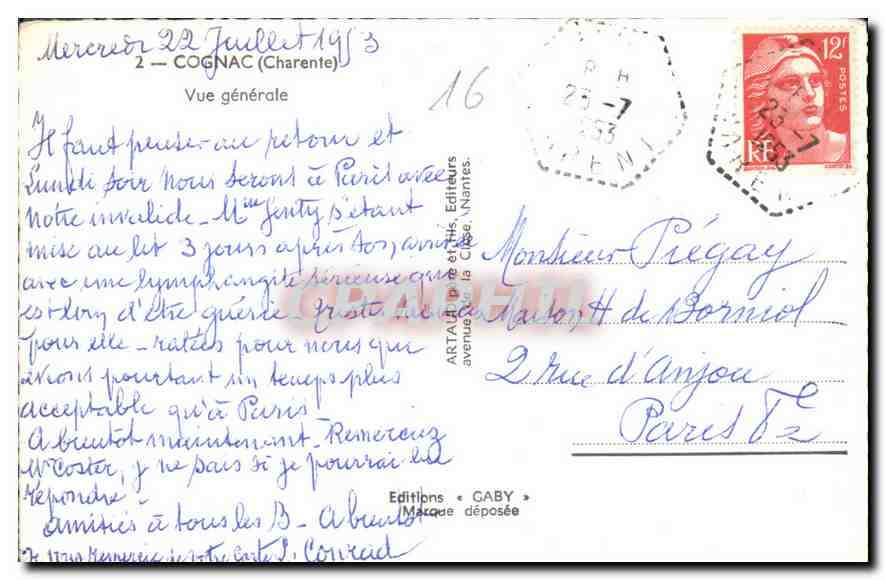 Mercredi 22 Juillet 1953
2 — COGNAC (Charente)
Vue générale
16
Il faut penser au retour et
Lundi soir nous serons à Paris avec
notre invalide - Mme Jenty s'étant
mise au lit 3 jours après son arrivée
avec une lymphangite sérieuse qui
est loin d'être guérie - tristes
pour elle - ratées pour nous qui
avions pourtant un temps plus
acceptable qu'à Paris
A bientôt maintenant - Remerciez
Mr Coster, je ne sais si je pourrai lui
répondre -
amitiés à tous les B - A bientôt
Je vous remercie de votre carte Conrad
ARTAUD père et fils, Editeurs
avenue de la Close, Nantes.
Editions « GABY »
(Marque déposée
P H
23 -7
1953
12f
POSTES
RF
23 -7
1953
Monsieur Piégay
Maison H de Borniol
2 rue d'Anjou
Paris